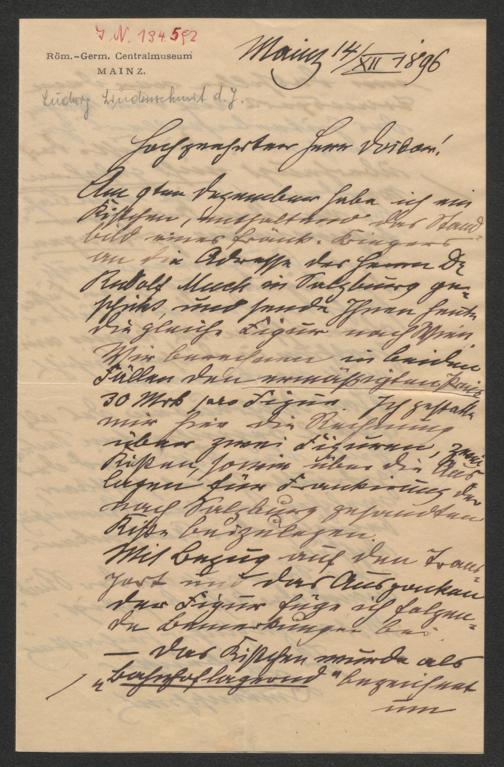 J. N. 134.592
Röm.-Germ. Centralmuseum
MAINZ.
Mainz 14/XII 1896
Ludwig Lindenschmit d. J.
Hochgeehrter Herr Doctor!
Am 9ten Dezember habe ich ein
Kistchen, enthaltend das Stand-
bild eines fränk. Kriegers
an die Adresse des Herrn Dr
Rudolf Much in Salzburg ge-
schickt, und sende Ihnen heute
die gleiche Figur nach Wien.
Wir berechnen in beiden
Fällen den ermäßigten Preis
30 Mrk pro Figur. Ich gestatte
mir hier die Rechnung
über zwei Figuren, zwei
Kisten, sowie über die Aus-
lagen für Frankirung der
nach Salzburg gesandten
Kiste beizulegen.
Mit Bezug auf den Trans-
port und das Auspacken
der Figur füge ich folgen-
de Bemerkungen bei.
— Das Kistchen wurde als
"bahnhoflagernd" bezeichnet
um